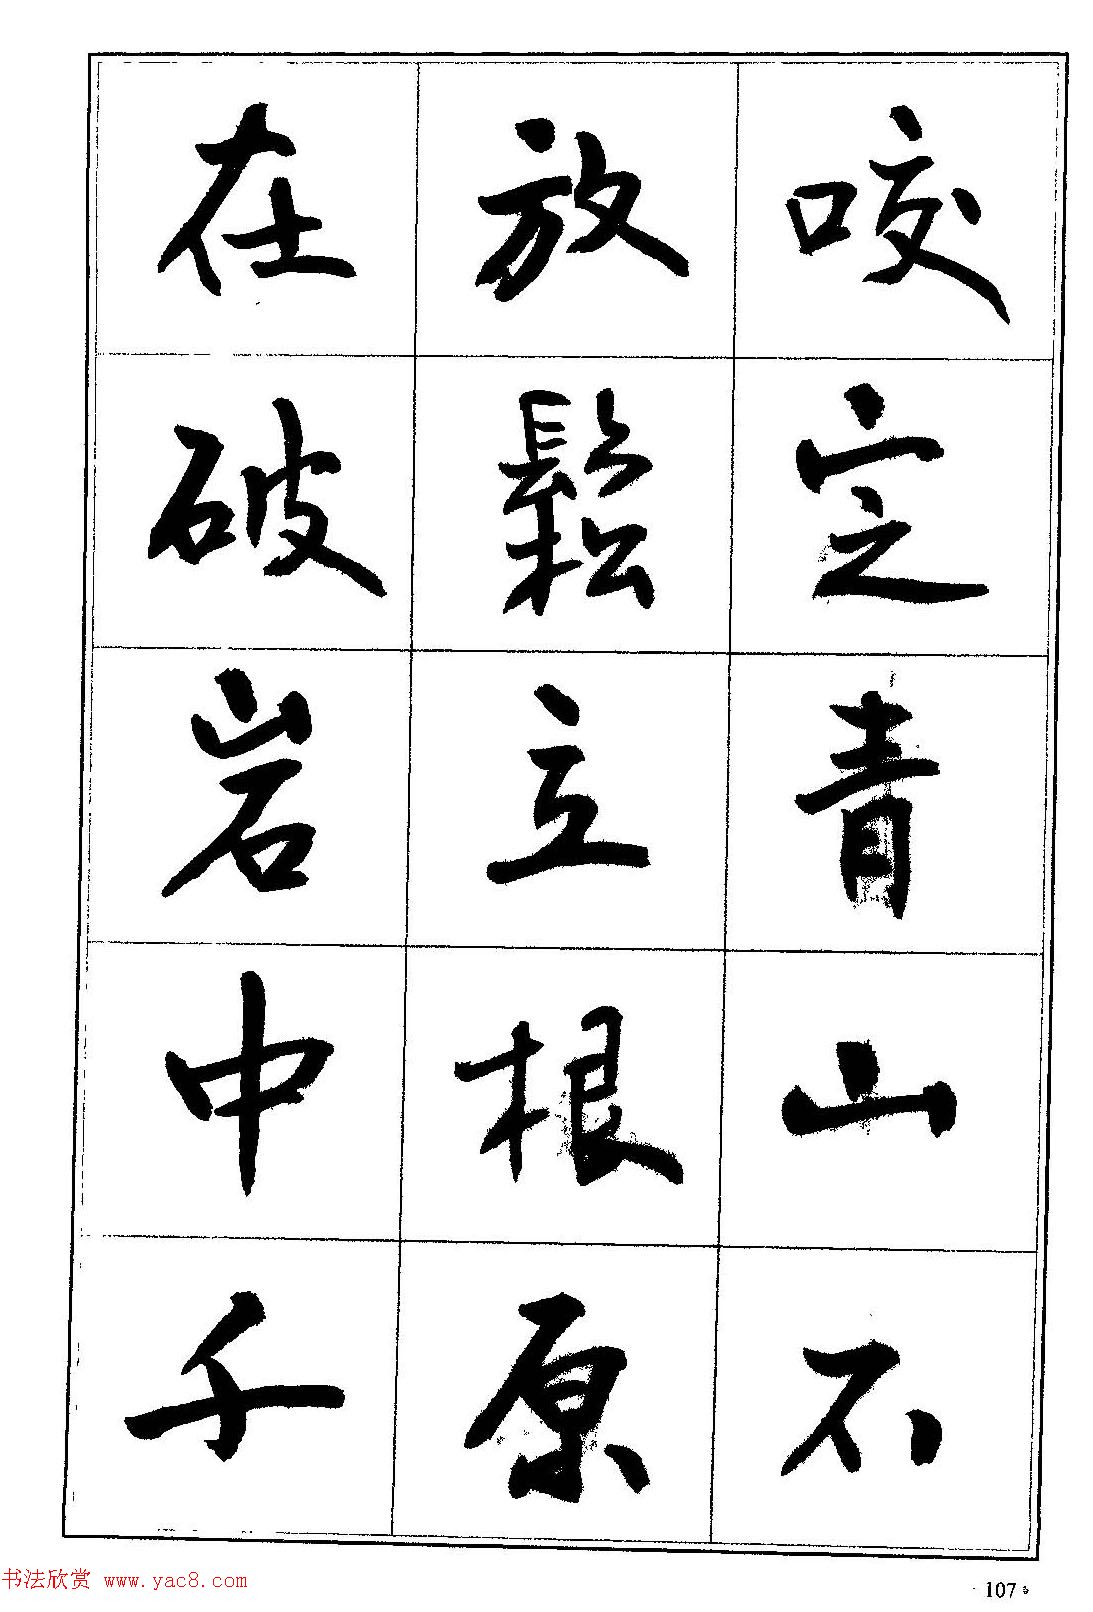 咬定青山不
放鬆立根原
在破岩中千
书法欣赏 www.yac8.com
·107·